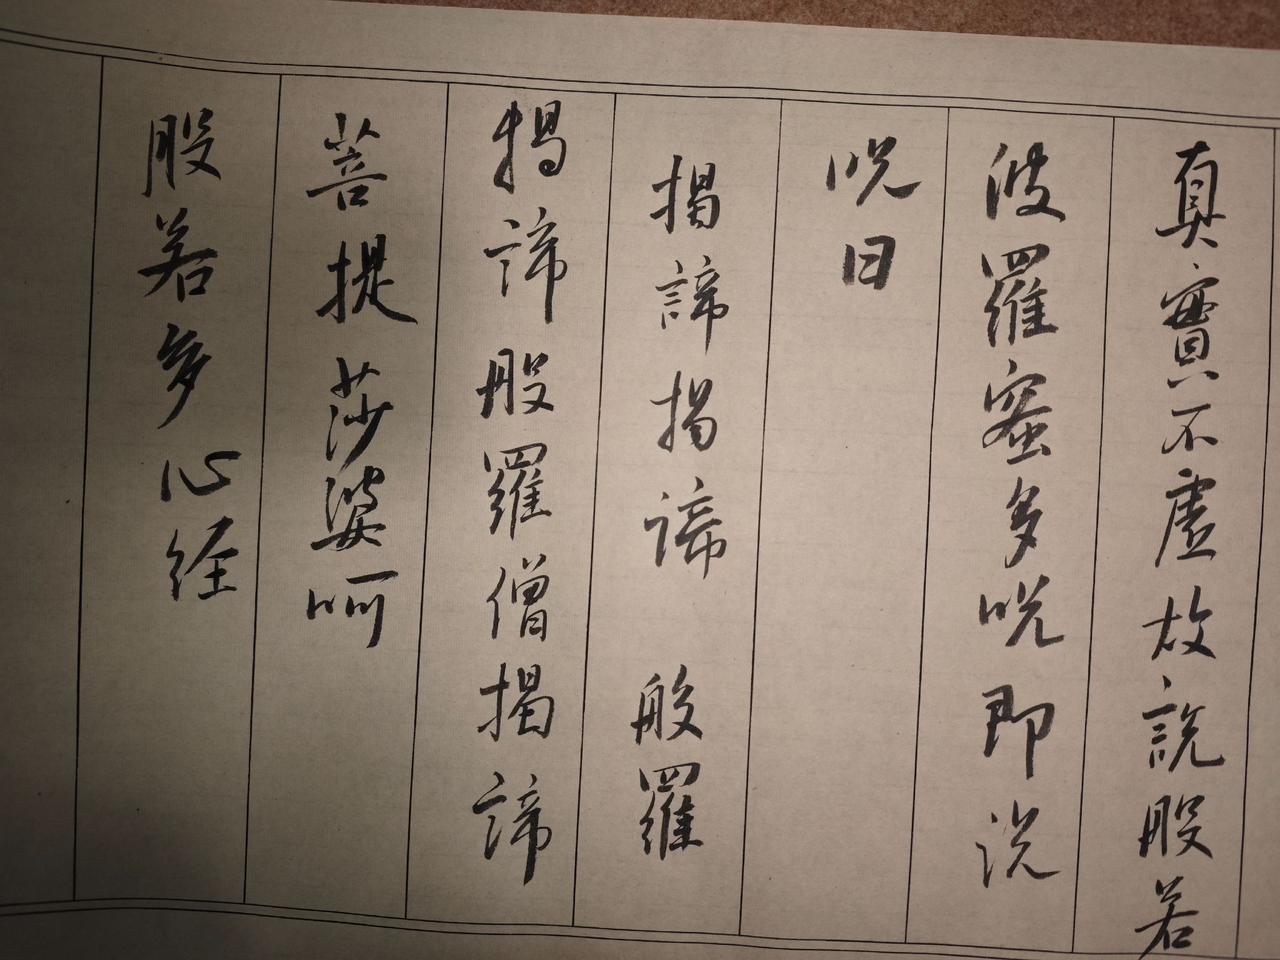 真實不虛故説般若
波羅蜜多呪即说
呪曰
揭諦揭諦 般羅
揭諦般羅僧揭諦
菩提莎婆呵
般若多心经